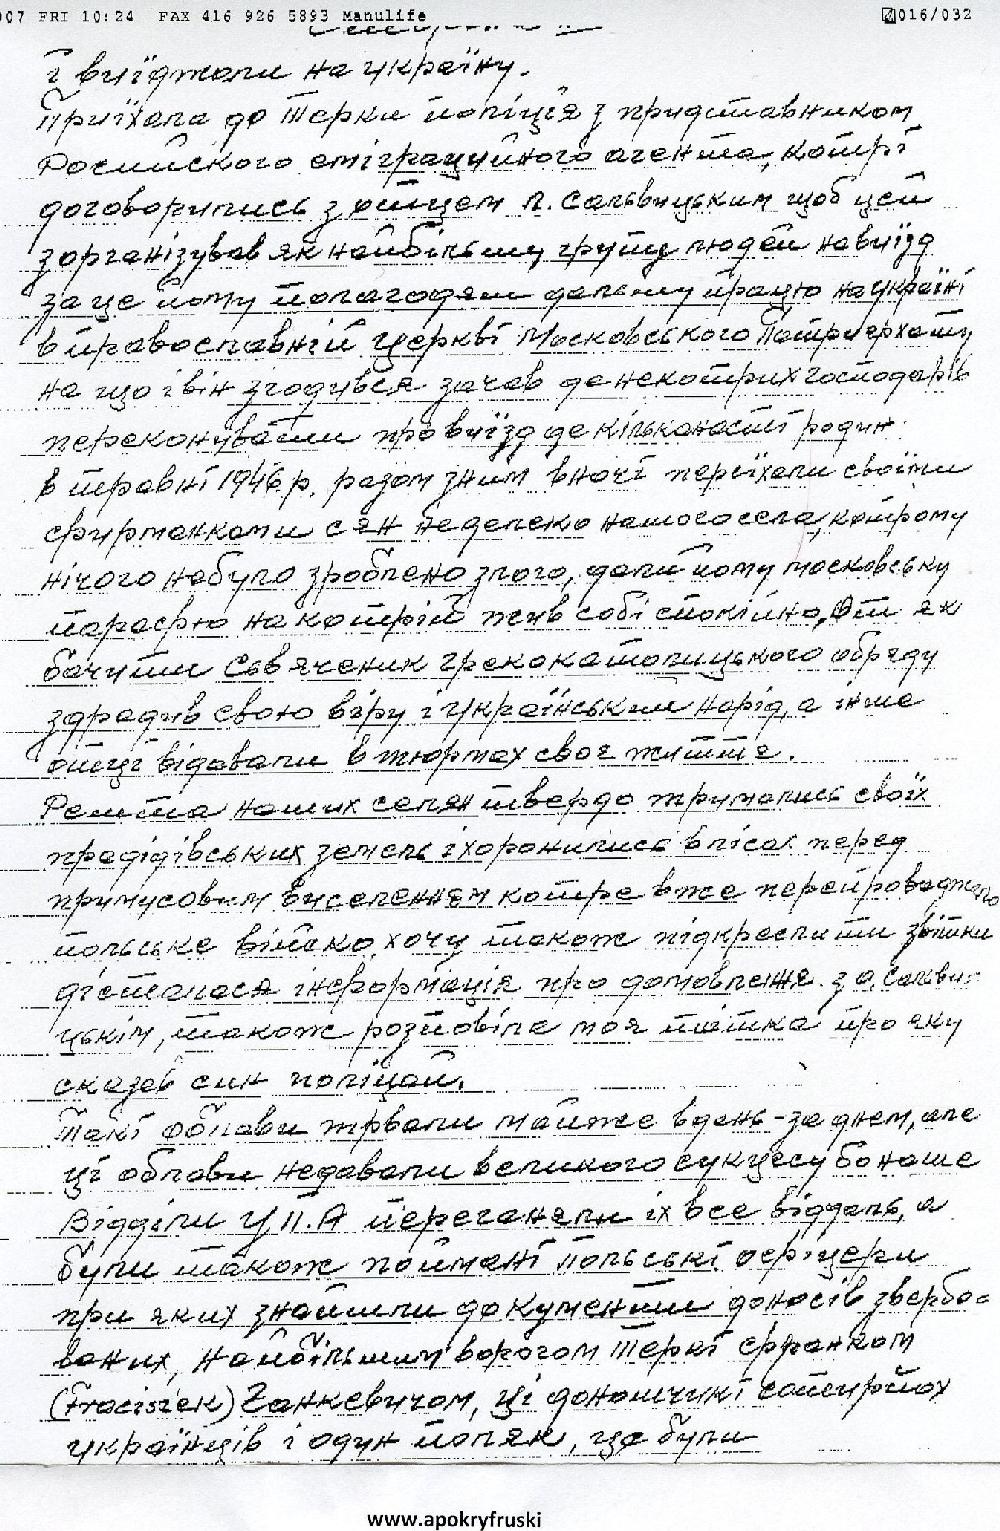 007 FRI 10:24 FAX 416 926 5893 Manulife 016/032
і виїджали на україну.
Приїхала до Терки поліція з придставником
Росийского еміграцийного агента, котрі
договорились з отцем л. Сальвицьким щоб цей
зорганізував як найбільшу групу людей на виїзд
за це йому полагодять дальшу працю на україні
в православній церкві Московського Патриярхату
на що івін згодився зачав де некотрих господарів
переконувати про виїзд де кільканасті родин
в травні 1946 р, разом зним вночі переїхали своїми
фирманками сян недалеко нашого села, котрому
нічого небуло зроблено злого, дали йому московську
парафію на котрій жив собі спокійно, От як
бачити Свяченик грекокатолицького обряду
здрадив свою віру і Український нарід, а інше
отці відавали в тюрмах своє життя.
Решта наших селян твердо трималис своїх
прадідівських земель іхоронилися в лісах перед
примусовим виселенням котре вже перепроваджало
польське війско, хочу також підкреслити звітки
дісталася інформація про домовлення з о, Сальви-
цькім, також розповіла моя тітка про яку
сказав син поліцай.
Такі облави трвали майже вдень-за днем, але
ці облави недавали великого сукцесу бо наше
Відділи У П. А переганяли їх все віддаль, а
були також поймані польські офіцери
при яких знайшли документи доносів звербо-
ваних, Найбільшим ворогом Теркі Франком
(Fraciszek) Ганкевичом, ці доношчикі сотирйох
українців і один поляк, це були
www.apokryfruski